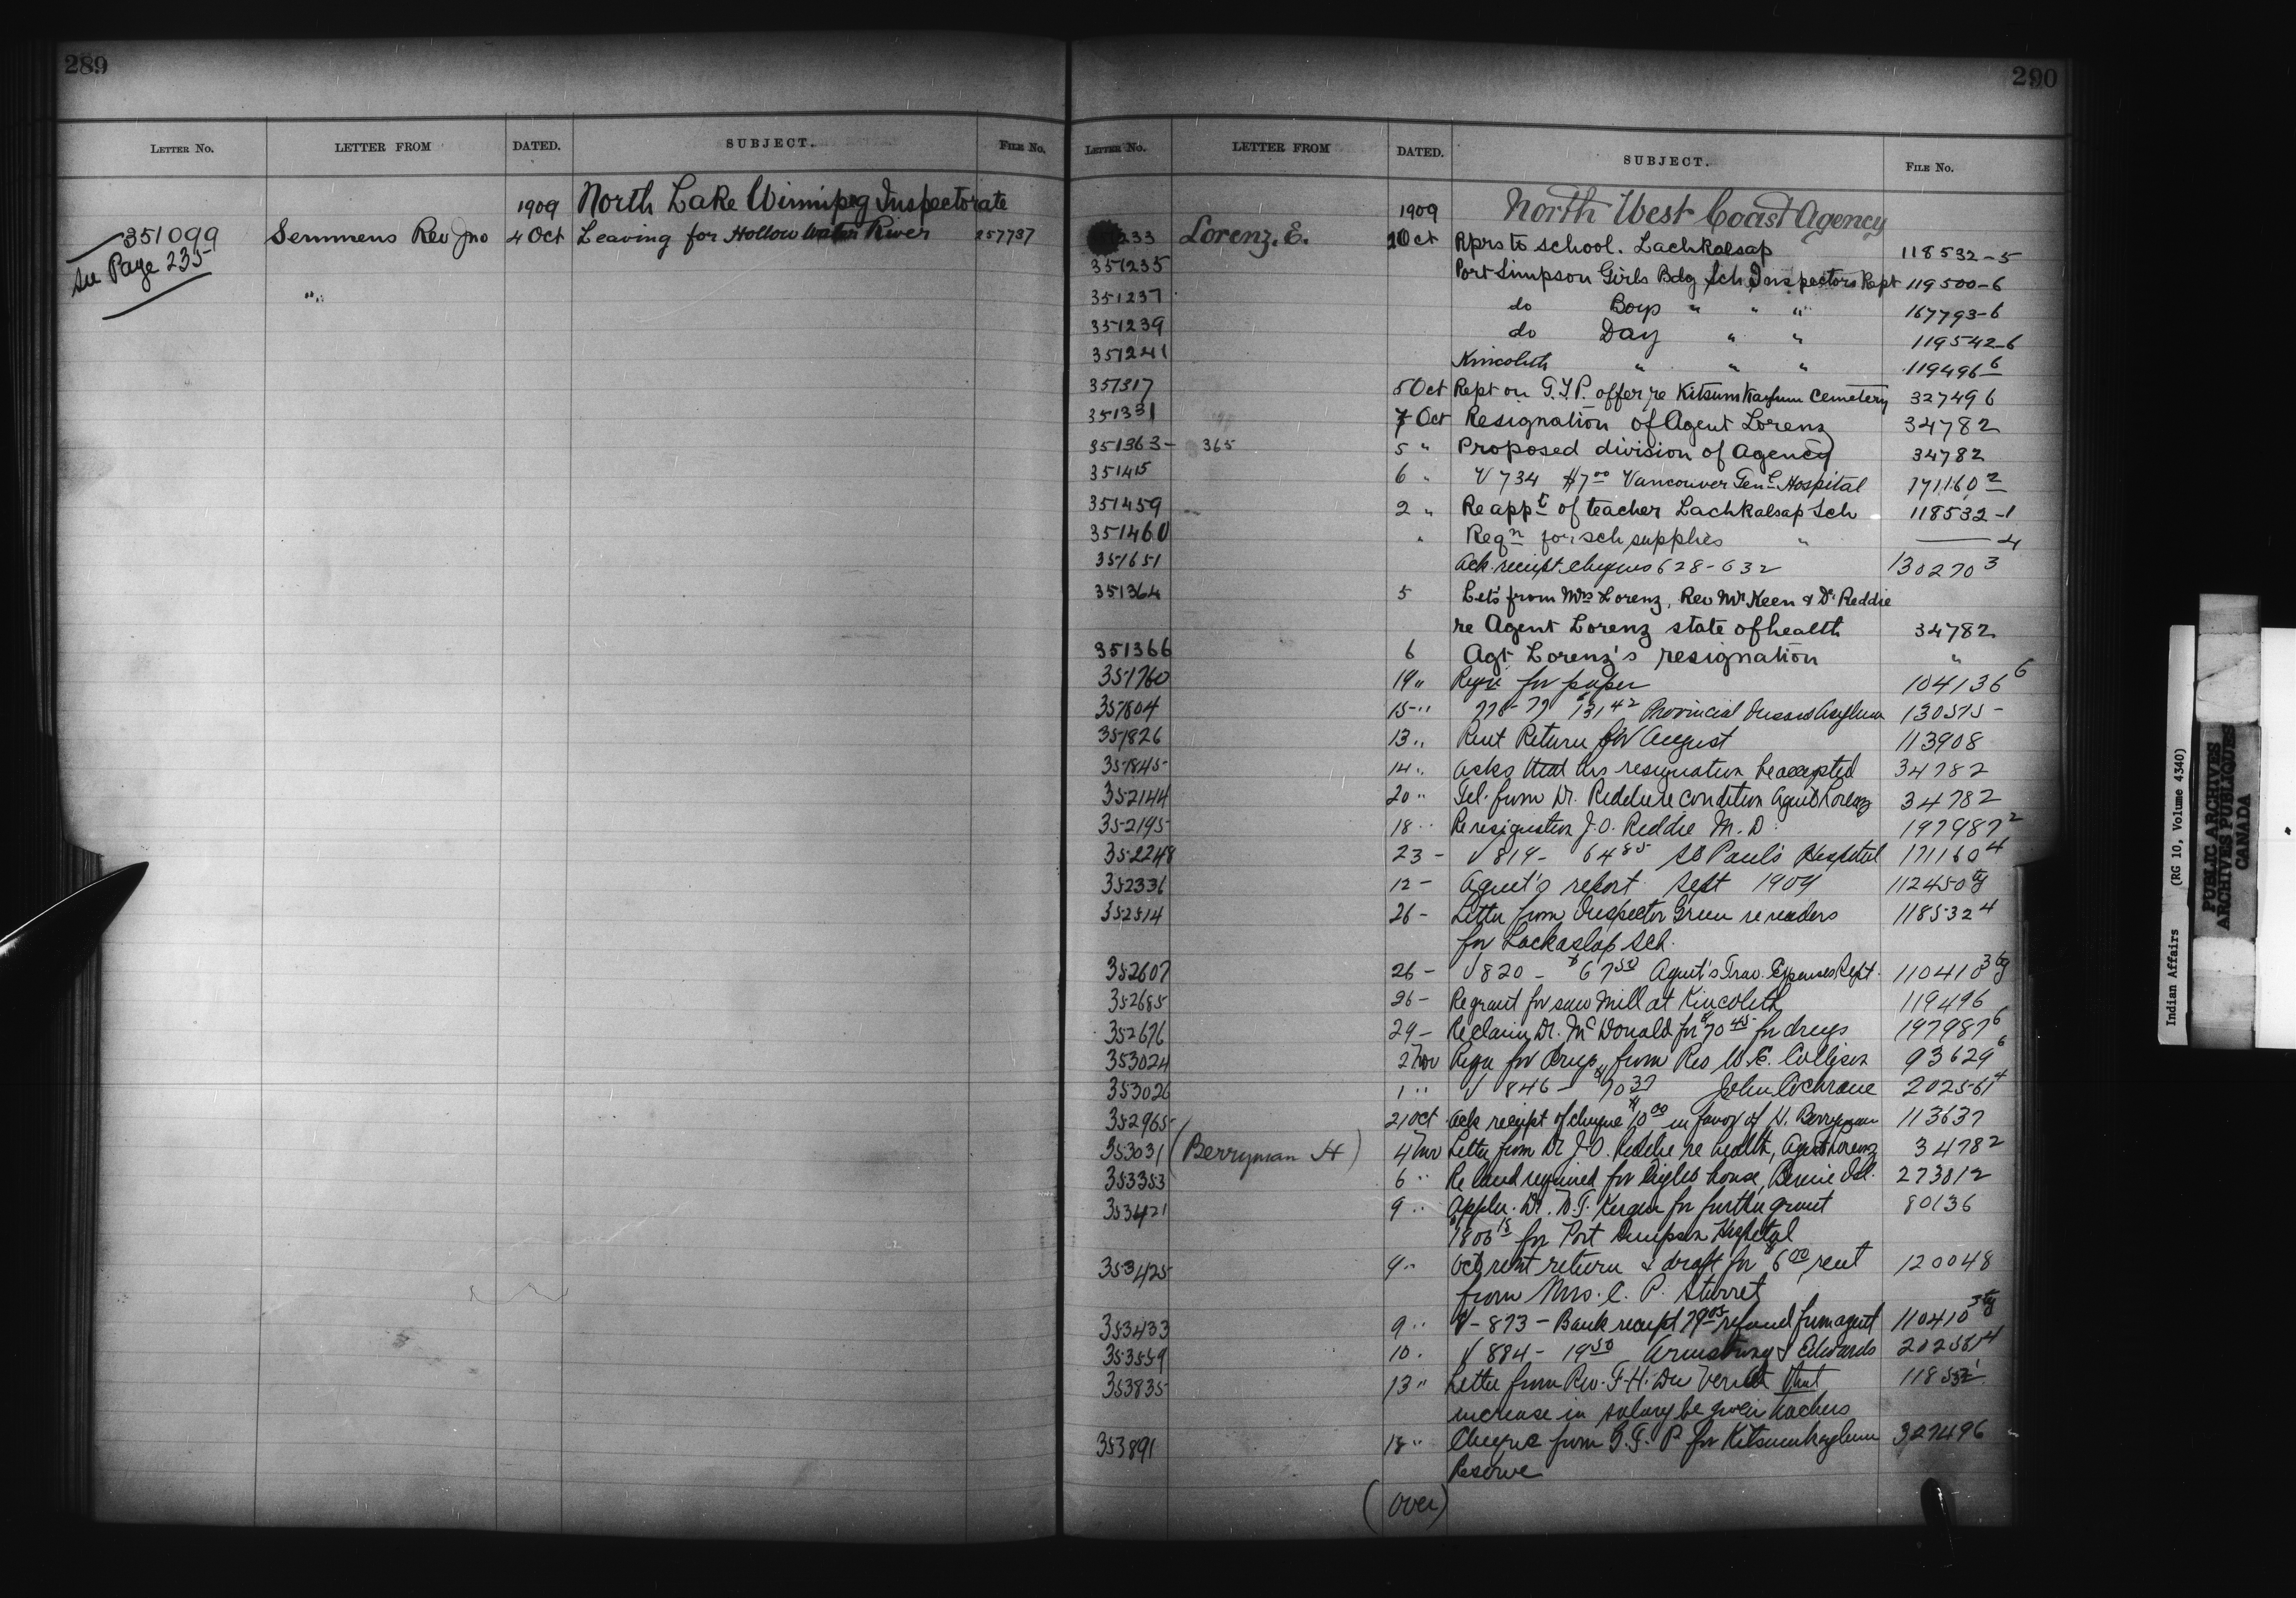 289
LETTER No. LETTER FROM DATED. SUBJECT. FILE No.
1909 North Lake Winnipeg Inspectorate
351099 Semmens Rev Jno 4 Oct Leaving for Hollow Water River 257737
See Page 235 "
290
LETTER No. LETTER FROM DATED. SUBJECT. FILE No.
1909 North West Coast Agency
233 Lorenz. E. Oct Rprs to school. Lachkalsap 118532-5
351235 Port Simpson Girls Bdg Sch Inspectors Rept 119500-6
351237 do Boys " " " 167793-6
351239 do Day " " 119542-6
351241 Kincolith " " " 119496 6
351317 5 Oct Rept on G.T.P. offer re Kitsumkaylum Cemetery 327496
351331 7 Oct Resignation of Agent Lorenz 34782
351363- 365 5 " Proposed division of Agency 34782
351415 6 " V 734 $7 00 Vancouver Genl Hospital 171160 2
351459 2 " Re appt of teacher Lachkalsap Sch 118532-1
351460 " Reqn for sch supplies " 4
351651 Ack receipt cheques 628-632 130270 3
351364 5 Lets from Mrs Lorenz, Rev Mr Keen & Dr Reddie
re Agent Lorenz state of health 34782
351366 6 Agt Lorenz's resignation "
351760 19 " Reqn for paper 104136 6
351804 15 " 131 42 Provincial Insane Asylum 130575-
351826 13 " Rent Return for August 113908
351845 14 " Asks that his resignation be accepted 34782
352144 20 " Tel. from Dr. Reddie re condition Agent Lorenz 34782
352195 18 " Re resignation J.O. Reddie M.D. 197987 2
352248 23 - V 819- 64 85 St Paul's Hospital 171160 4
352336 12 - Agent's report Sept 1909 112450
352514 26 - Letter from Inspector Green re readers 118532 4
for Lackaslap Sch.
352607 26 - V 820 - $67 50 Agent's Trav. Expenses Sept. 110410 3
352685 26 - Re grant for saw mill at Kincolith 119496
352676 29 - Re claim Dr. McDonald for $70 45 for drugs 197987 6
353024 2 Nov Reqn for drugs from Rev W.E. Collison 93629 6
353026 1 " V 846 - $70 37 John Cochrane 202561 4
352965 21 Oct Ack receipt of cheque $10 00 in favor of H. Berryman 113637
353031 (Berryman H) 4 Nov Letter from Dr J.O. Reddie re health, Agent Lorenz 34782
353353 6 " Re land required for lights house, Birnie Isl. 273812
353421 9 " Appln. Dr. Kergin for further grant 80136
$1806 15 for Port Simpson Hospital
353425 9 " Oct rent return & draft for $6 00 rent 120048
from Mrs. C. P. Sturret
353433 9 " V - 873 - Bank receipt 79 05 refund from agent 110410 3
353559 10 . V 884 - 19 50 Armstrong & Edwards 202561 4
353835 13 " Letter from Rev. F.H. Du Vernet that 118532 1
increase in salary be given teachers
353891 18 " Cheque from G.T.P for Kitsumkaylum 327496
Reserve
(over)
Indian Affairs (RG 10, Volume 4340)
PUBLIC ARCHIVES
ARCHIVES PUBLIQUES
CANADA